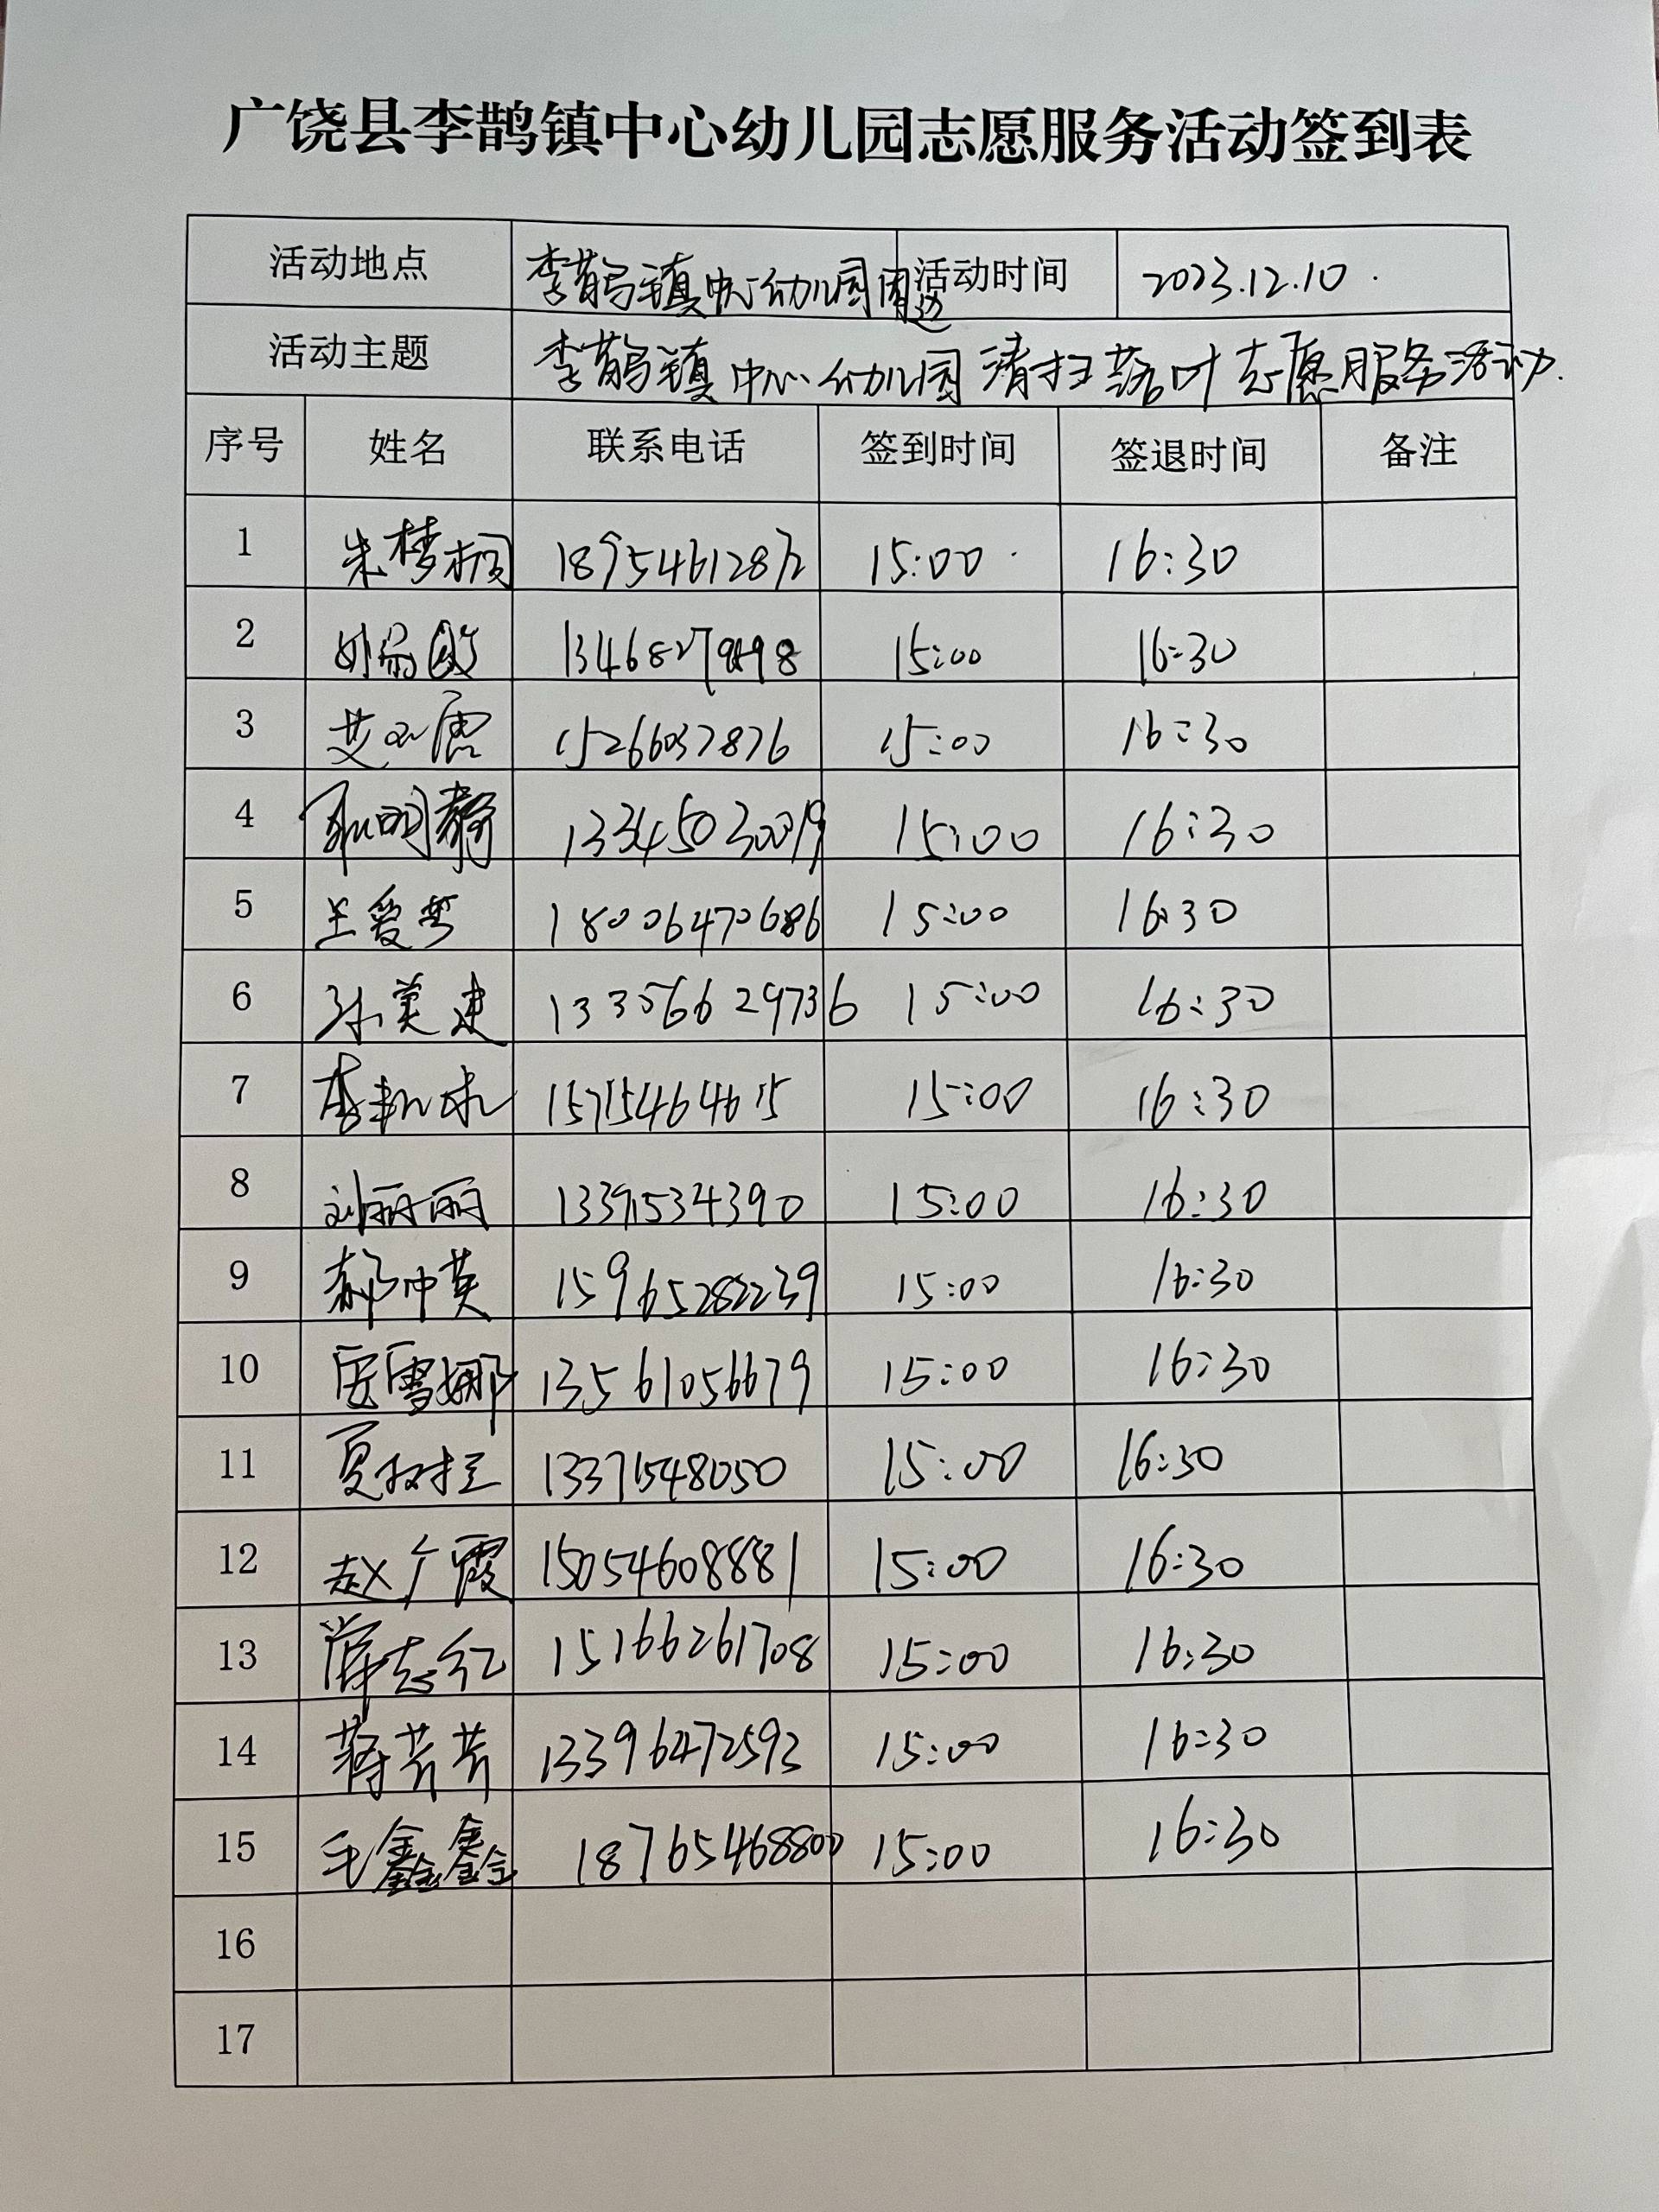 广饶县李鹊镇中心幼儿园志愿服务活动签到表
活动地点 李鹊镇中心幼儿园周边 活动时间 2023.12.10.
活动主题 李鹊镇中心幼儿园清扫落叶志愿服务活动.
序号 姓名 联系电话 签到时间 签退时间 备注
1 朱梦桐 18954612872 15:00 16:30
2 15:00 16:30
3 15266037876 15:00 16:30
4 13345030019 15:00 16:30
5 王爱雪 18006470686 15:00 16:30
6 孙美建 13356629736 15:00 16:30
7 15715464615 15:00 16:30
8 刘丽丽 13371534390 15:00 16:30
9 郝中英 15965282239 15:00 16:30
10 贾雪娜 13561056679 15:00 16:30
11 13371548050 15:00 16:30
12 赵广霞 15054608881 15:00 16:30
13 常志红 15166261708 15:00 16:30
14 蒋芳芳 13396472593 15:00 16:30
15 毛鑫鑫 18765468800 15:00 16:30
16
17